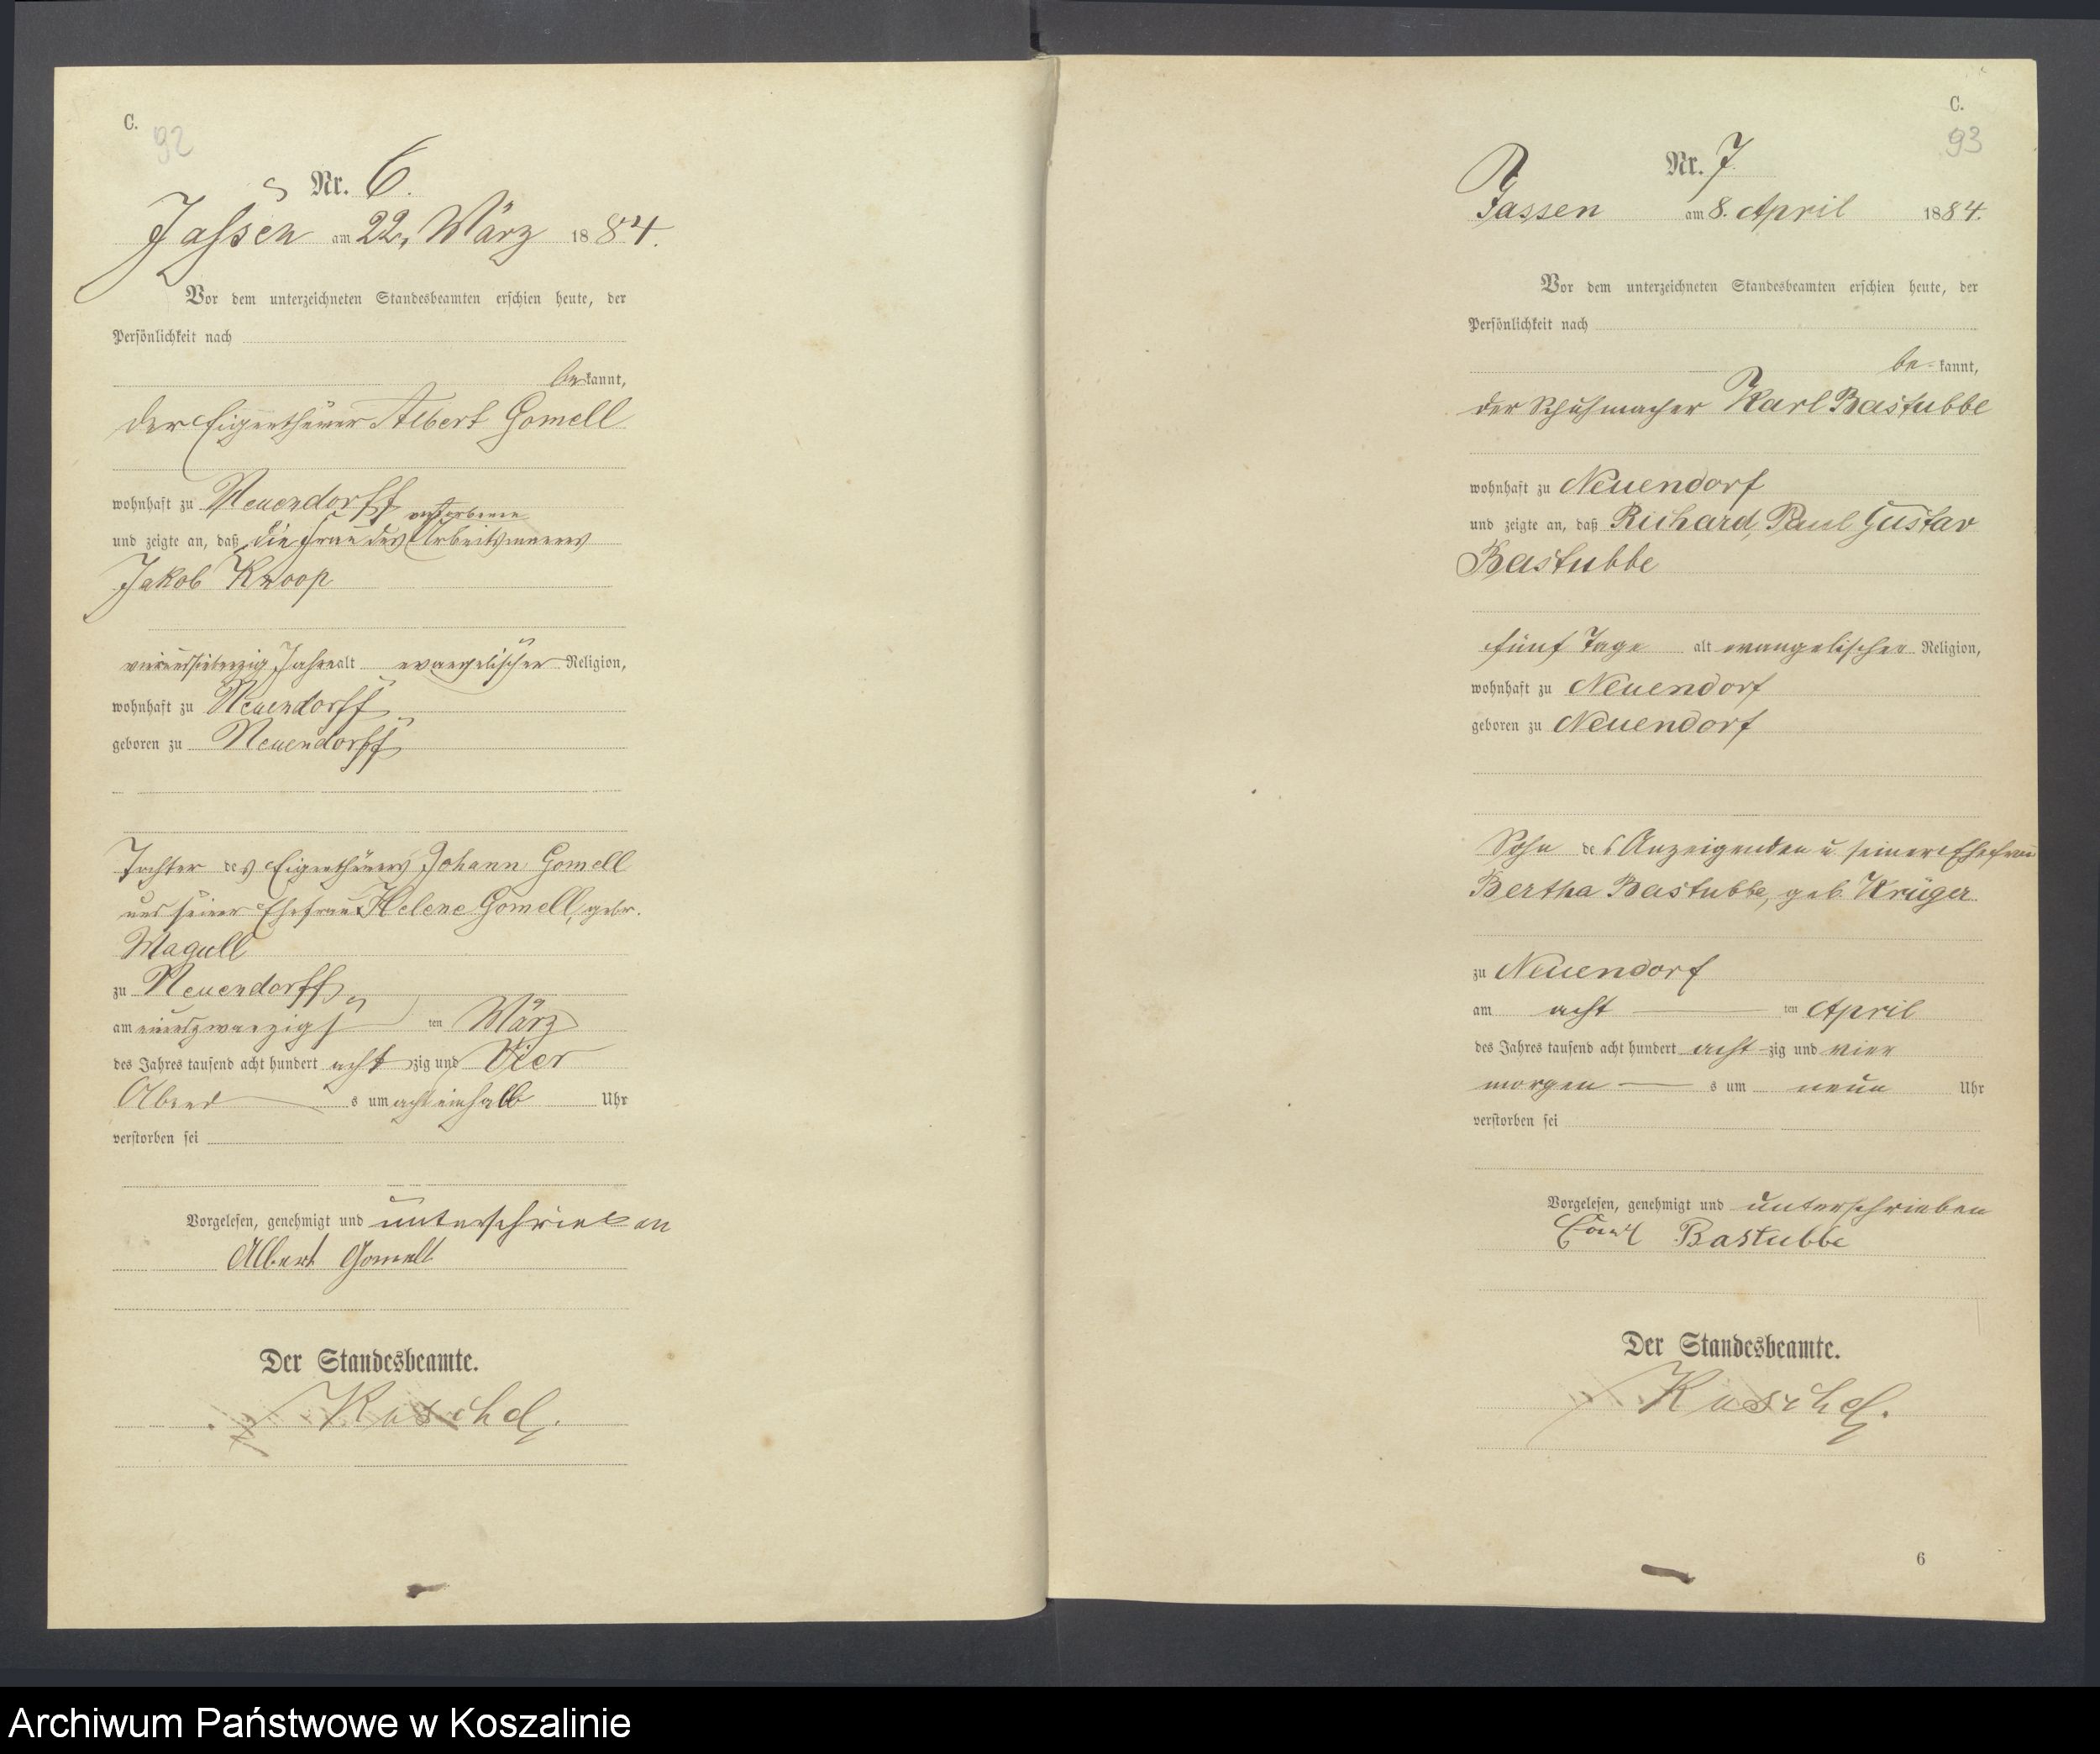 C.
92
Nr. 6.
Jassen am 22. März 1884.
Vor dem unterzeichneten Standesbeamten erschien heute, der
Persönlichkeit nach
bekannt,
der Eigenthümer Albert Gomell
wohnhaft zu Neuendorff
verstorbene
und zeigte an, daß die Frau des Arbeitsmannes
Jakob Knoop
vierundsiebenzig Jahre alt evangelischer Religion,
wohnhaft zu Neuendorff
geboren zu Neuendorff
Tochter des Eigenthümers Johann Gomell
und seiner Ehefrau Helene Gomell, gebr.
Magull
zu Neuendorff
am einundzwanzigs ten März
des Jahres tausend acht hundert acht zig und Vier
Abend s um acht einhalb Uhr
verstorben sei
Vorgelesen, genehmigt und unterschrieben
Albert Gomell
Der Standesbeamte.
Kuschel.
C.
93
Nr. 7
Jassen am 8. April 1884.
Vor dem unterzeichneten Standesbeamten erschien heute, der
Persönlichkeit nach
be-kannt,
der Schuhmacher Karl Bastubbe
wohnhaft zu Neuendorf
und zeigte an, daß Richard, Paul Gustav
Bastubbe
fünf Tage alt evangelischer Religion,
wohnhaft zu Neuendorf
geboren zu Neuendorf
Sohn des Anzeigenden u. seiner Ehefrau
Bertha Bastubbe, geb. Krüger
zu Neuendorf
am acht ten April
des Jahres tausend acht hundert acht-zig und vier
morgen s um neun Uhr
verstorben sei
Vorgelesen, genehmigt und unterschrieben
Carl Bastubbe
Der Standesbeamte.
Kuschel.
6
Archiwum Państwowe w Koszalinie